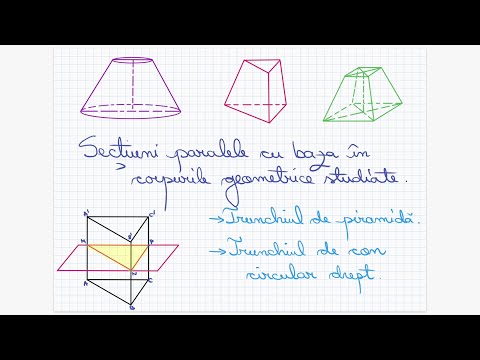 Secțiuni paralele cu baza în
corpurile geometrice studiate.
→ Trunchiul de piramidă.
→ Trunchiul de con
circular drept.
A' C'
B'
M P
N
A C
B